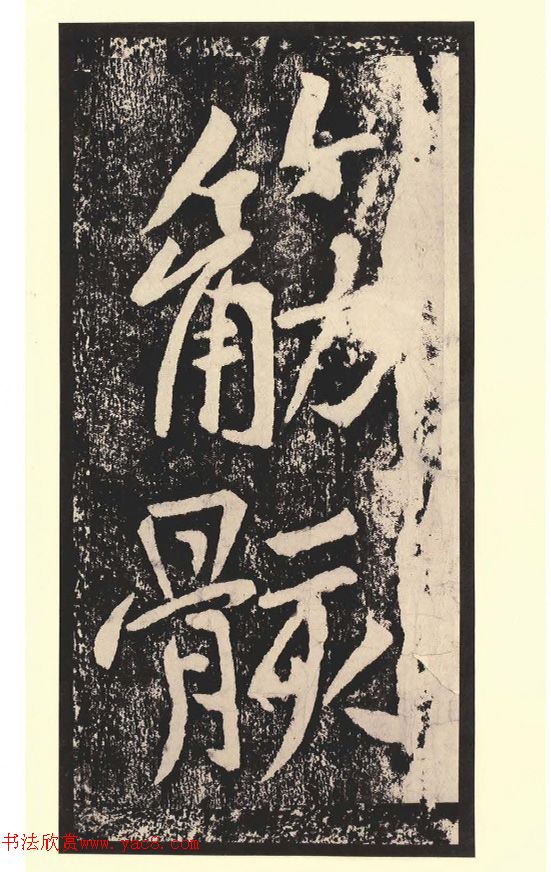 筋
骸
书法欣赏www.yac8.com